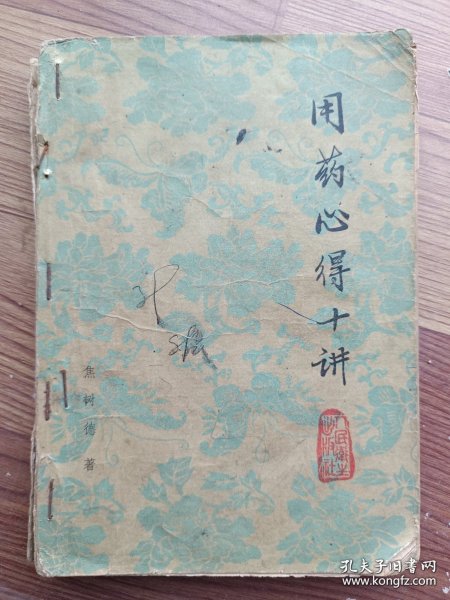 用药心得十讲
焦树德 著
人民卫生出版社
孔夫子旧书网
www.kongfz.com